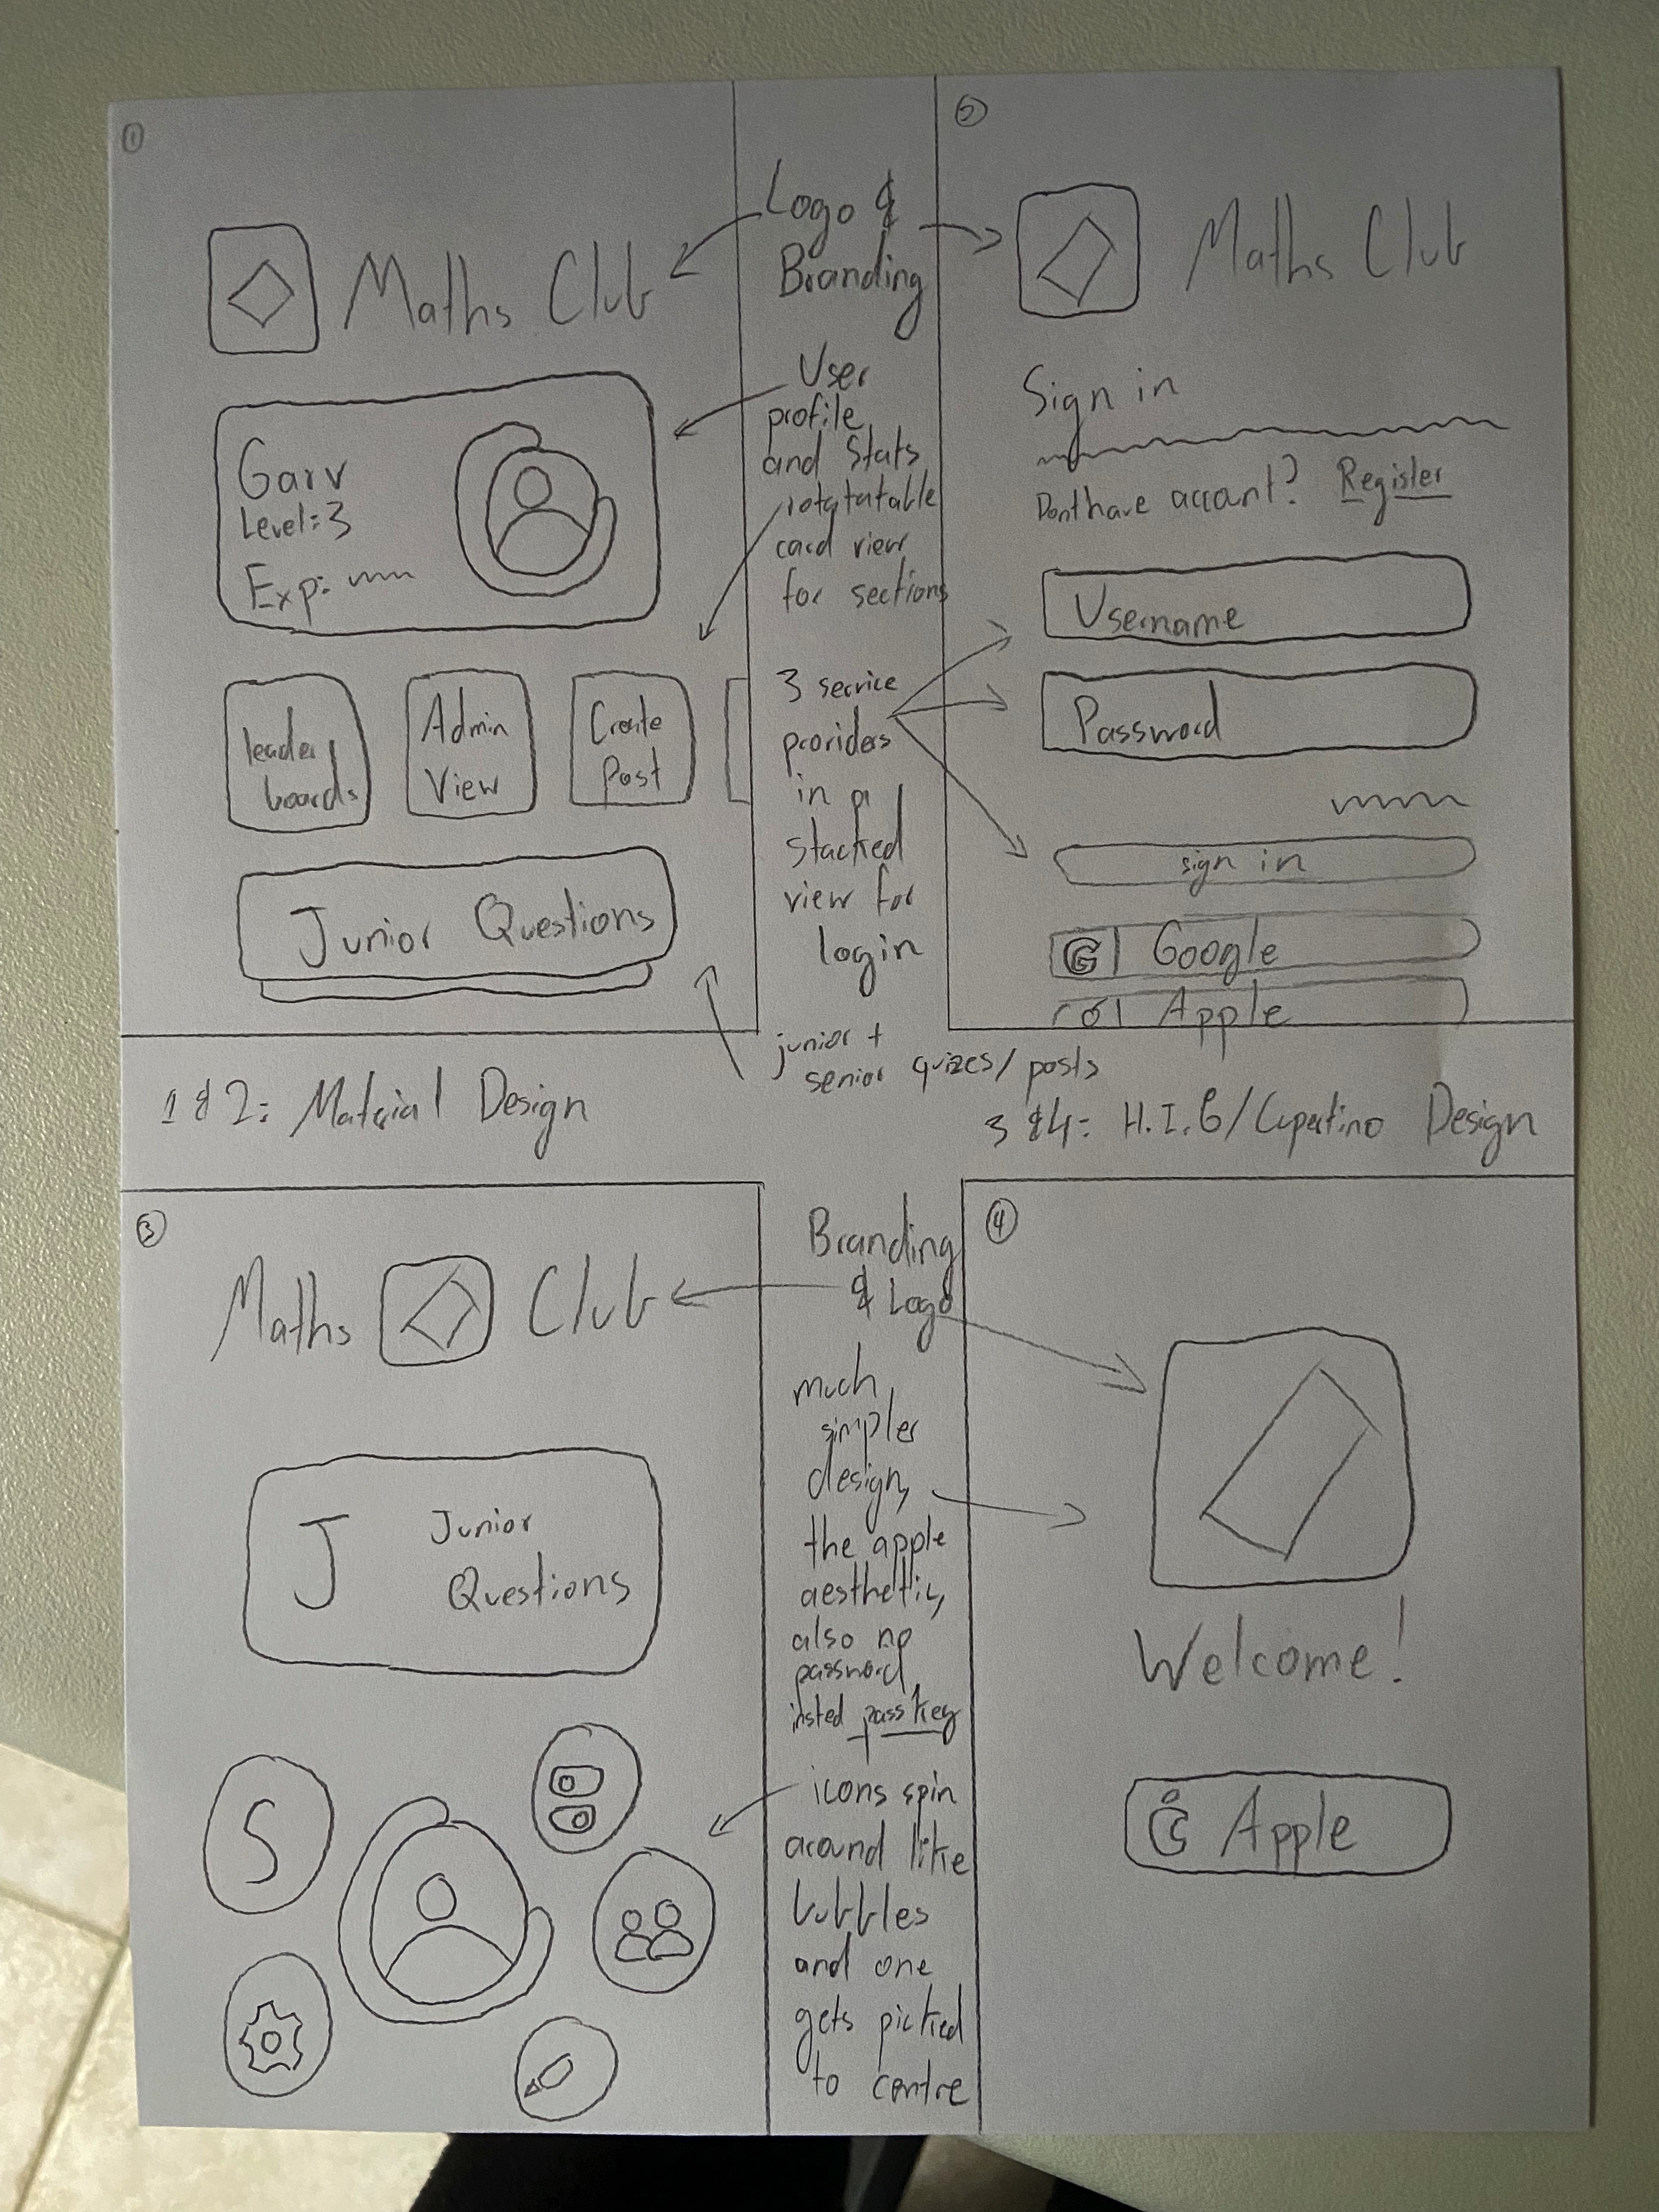 1
Maths Club
Garv
Level: 3
Exp:
leader
boards
Admin
View
Create
Post
Junior Questions
Logo &
Branding
User
profile
and Stats
rotatatable
card view
for sections
3 service
providers
in a
stacked
view for
login
junior +
senior quizes/posts
2
Maths Club
Sign in
Dont have account? Register
Username
Password
sign in
G Google
Apple
1 & 2: Material Design
3 & 4: H.I.G/Cupertino Design
3
Maths Club
J Junior
Questions
S
Branding
& Logo
much
simpler
design,
the apple
aesthetic,
also no
password,
insted passkey
icons spin
around like
bubbles
and one
gets picked
to centre
4
Welcome!
Apple